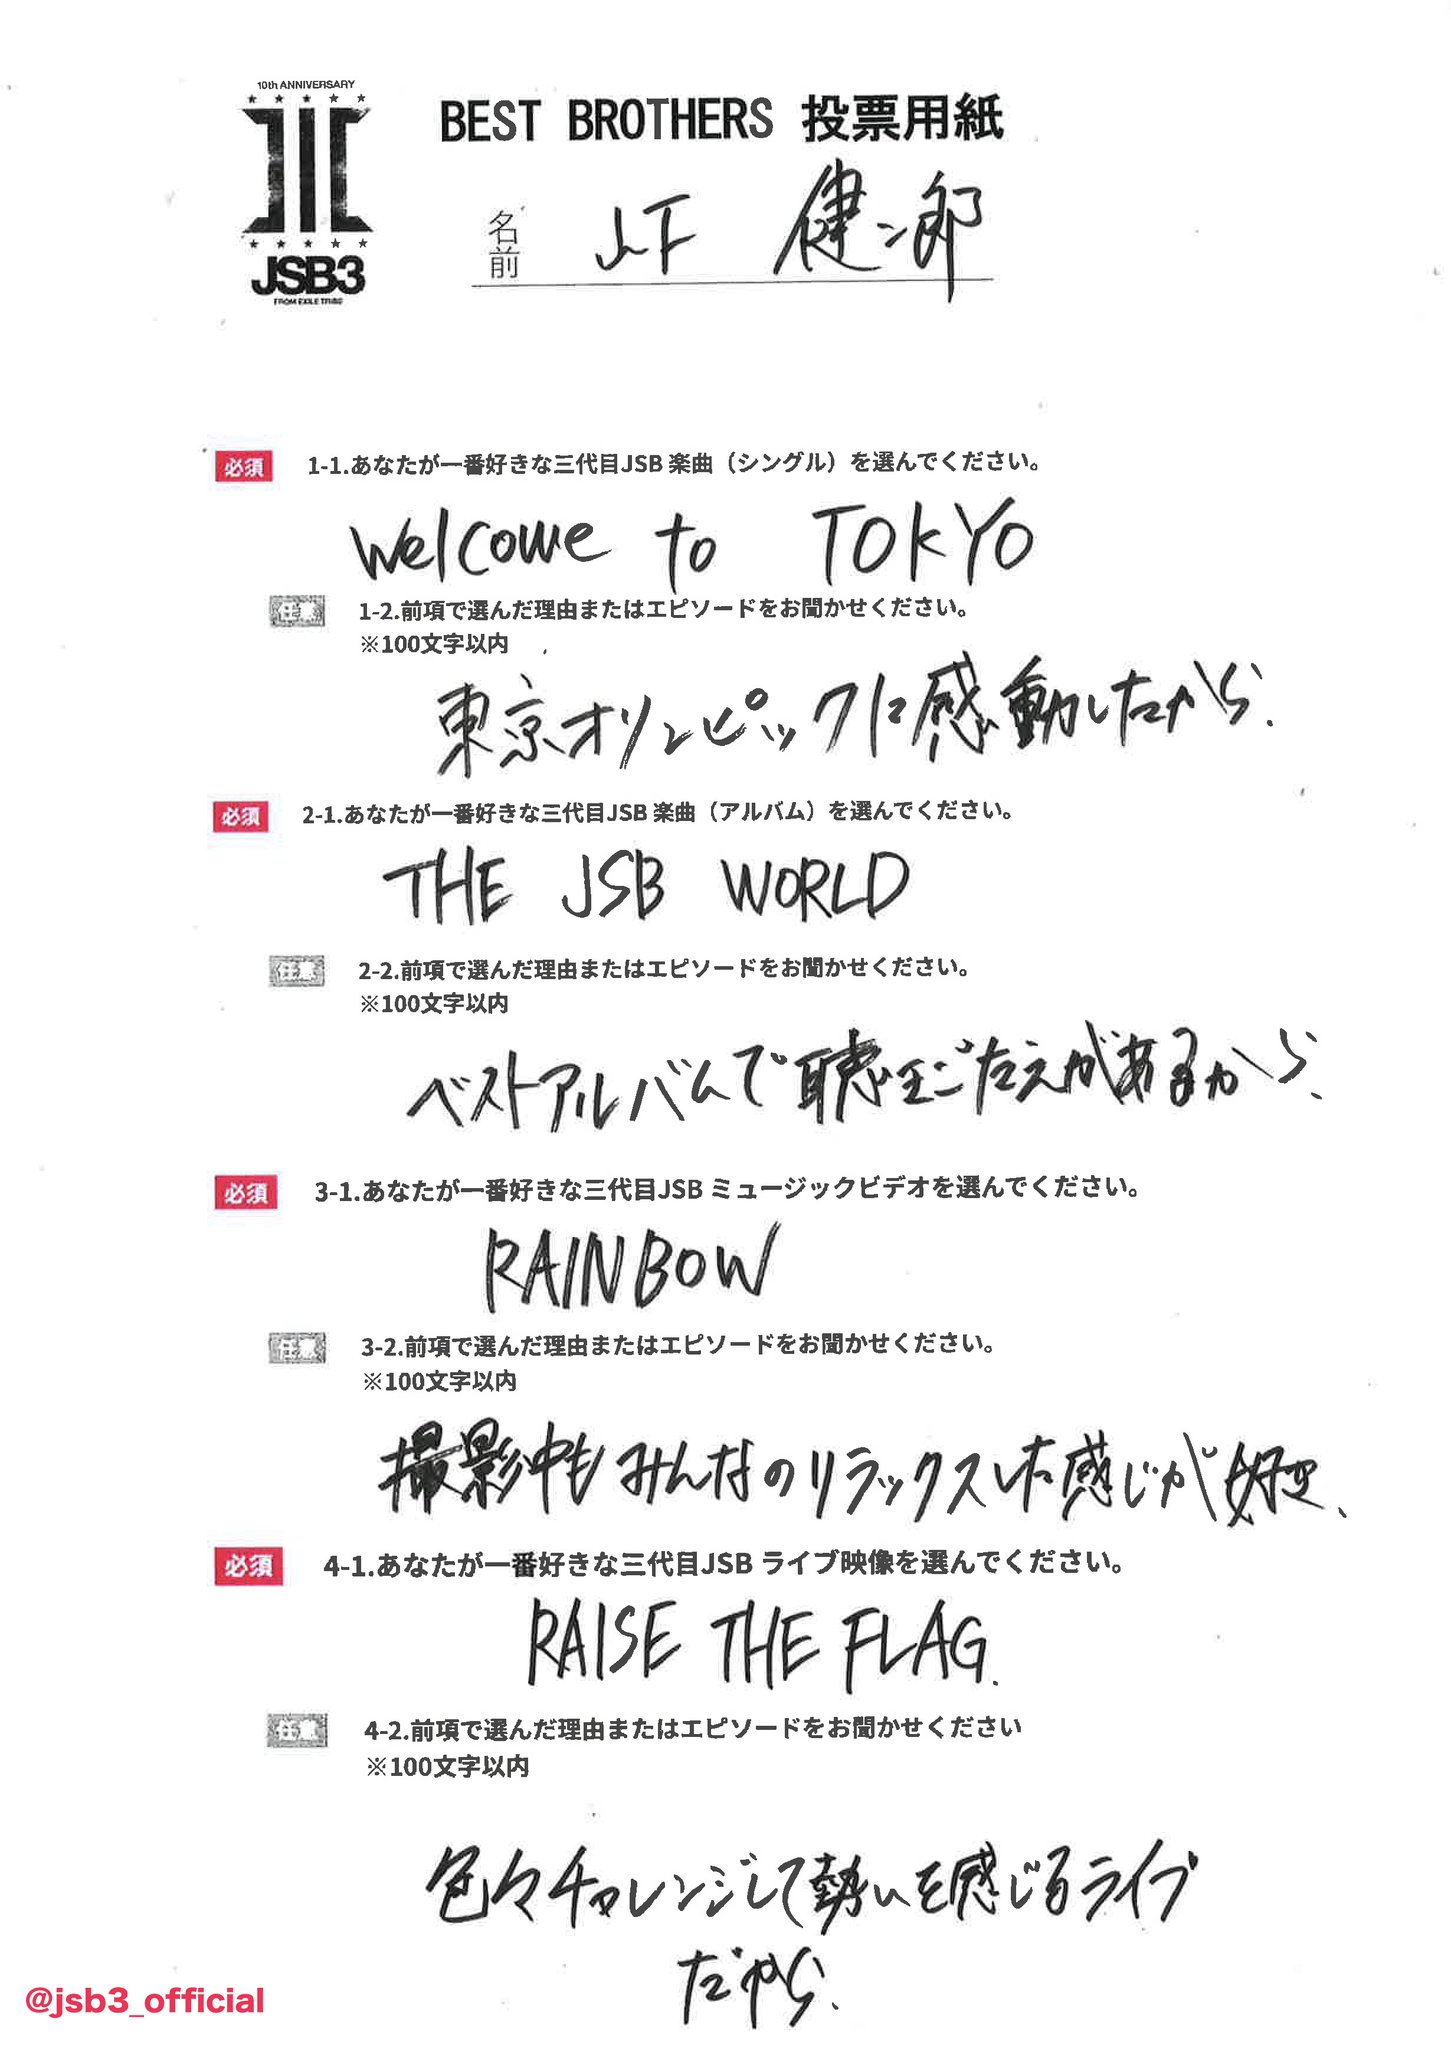 10th ANNIVERSARY
JSB3
FROM EXILE TRIBE
BEST BROTHERS 投票用紙
名前 山下 健二郎
必須 1-1.あなたが一番好きな三代目JSB 楽曲（シングル）を選んでください。
Welcome to TOKYO
任意 1-2.前項で選んだ理由またはエピソードをお聞かせください。
※100文字以内
東京オリンピックに感動したから.
必須 2-1.あなたが一番好きな三代目JSB 楽曲（アルバム）を選んでください。
THE JSB WORLD
任意 2-2.前項で選んだ理由またはエピソードをお聞かせください。
※100文字以内
ベストアルバムで聴きごたえがあるから、
必須 3-1.あなたが一番好きな三代目JSB ミュージックビデオを選んでください。
RAINBOW
任意 3-2.前項で選んだ理由またはエピソードをお聞かせください。
※100文字以内
撮影中もみんなのリラックスした感じが好き、
必須 4-1.あなたが一番好きな三代目JSB ライブ映像を選んでください。
RAISE THE FLAG.
任意 4-2.前項で選んだ理由またはエピソードをお聞かせください
※100文字以内
色々チャレンジして勢いを感じるライブ
だから、
@jsb3_official